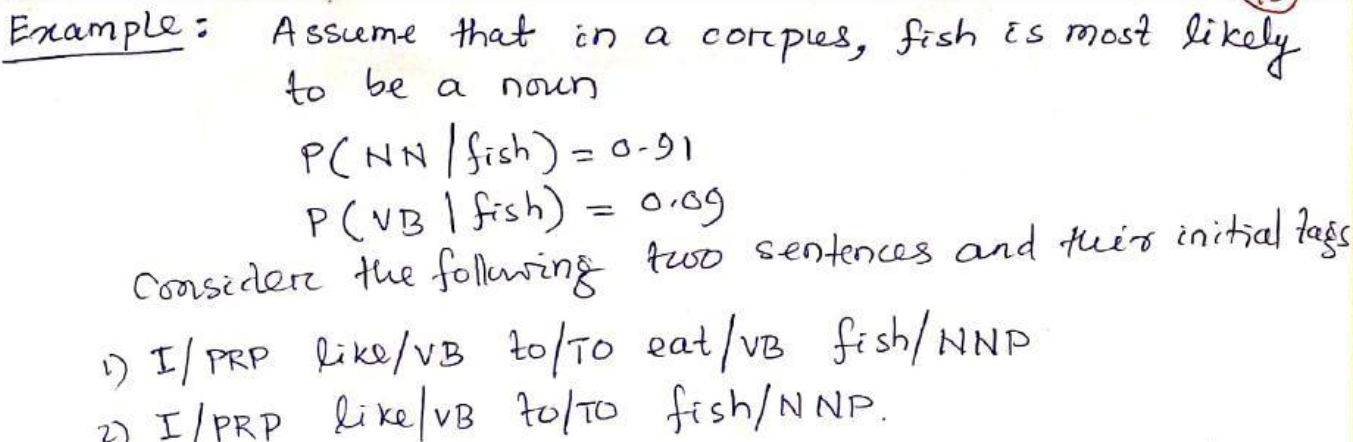 Example: Assume that in a corpus, fish is most likely
to be a noun
P(NN | fish) = 0.91
P(VB | fish) = 0.09
Consider the following two sentences and their initial tags
1) I/PRP like/VB to/TO eat/VB fish/NNP
2) I/PRP like/VB to/TO fish/NNP.